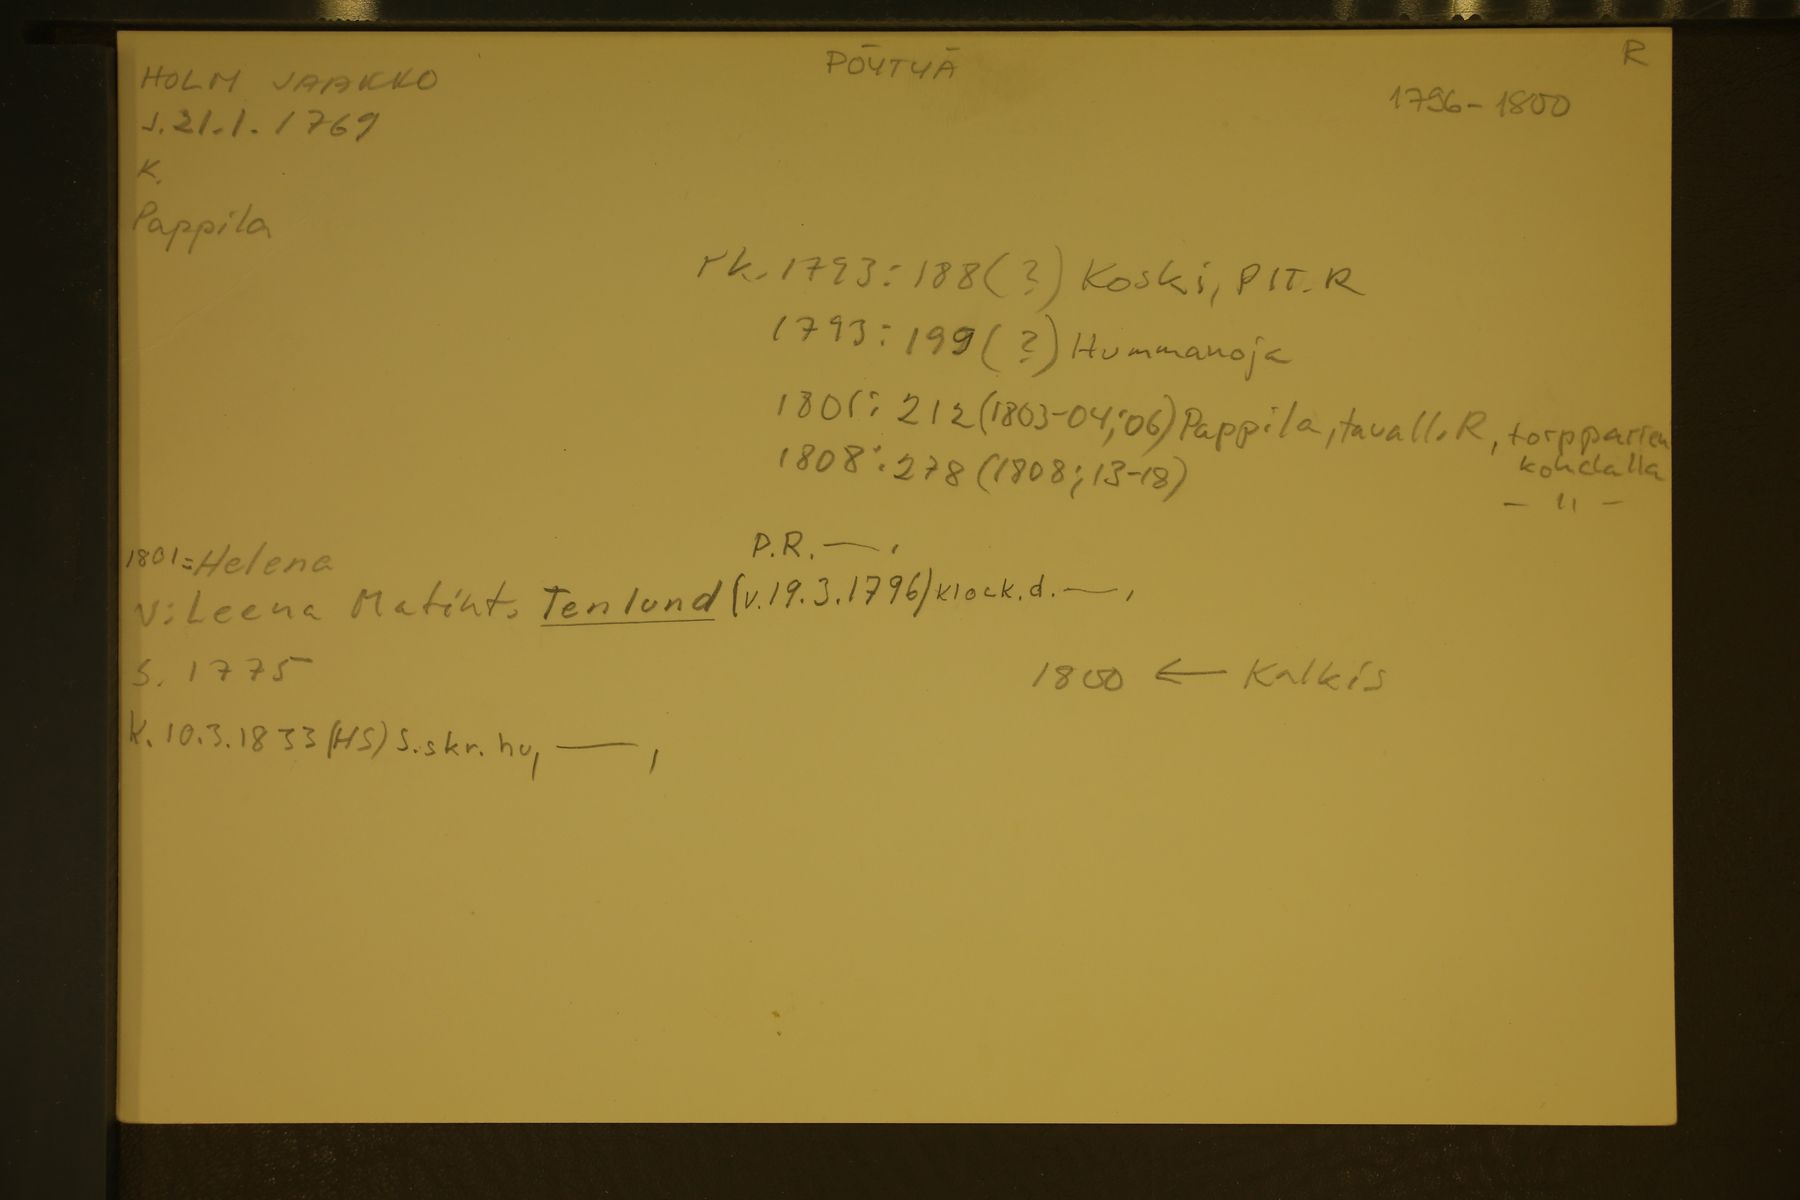 PÖYTYÄ
R
HOLM JAAKKO
1796-1800
s. 21.1.1769
K.
Pappila
rk. 1793: 188 (?) Koski, PIT. R
1793: 199 (?) Hummanoja
1801: 212 (1803-04; 06) Pappila, tavall. R, torpparien
kohdalla
1808: 278 (1808; 13-18)
- " -
P.R. —,
1801=Helena
V: Leena Matint. Tenlund (v. 19.3.1796) klock. d. —,
s. 1775
1800 ← Kalkis
K. 10.3.1833 (HS) S. skr. hu, —,